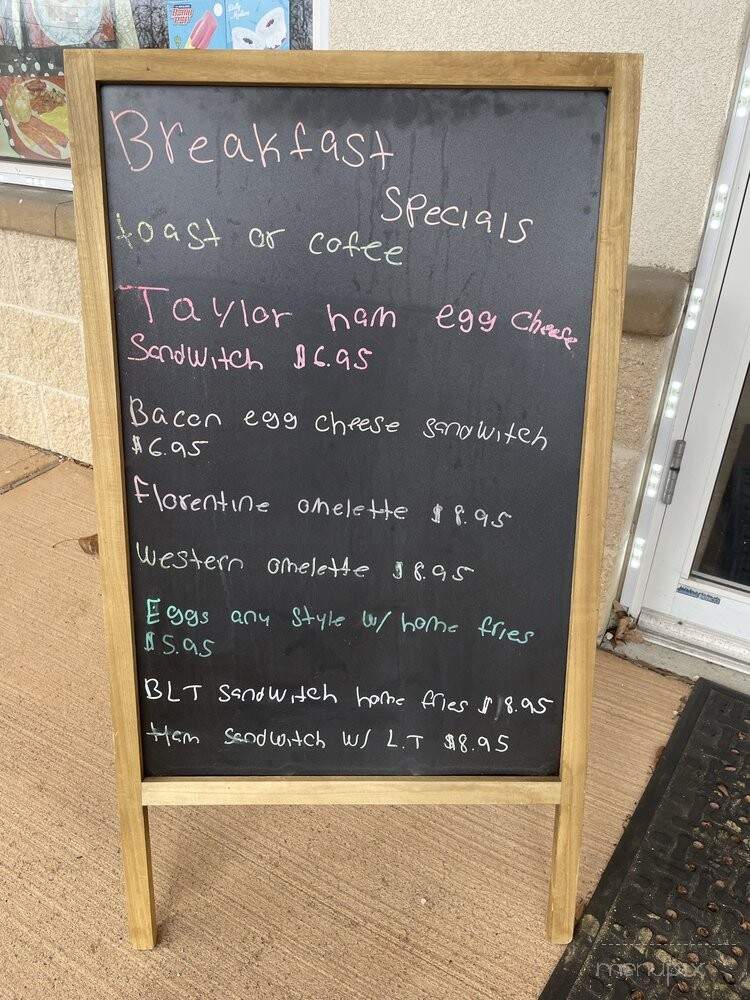 Breakfast
Specials
toast or cofee
Taylor ham egg cheese
Sandwitch $6.95
Bacon egg cheese sandwitch
$6.95
Florentine omelette $8.95
Western omelette $8.95
Eggs any style w/ home fries
$5.95
BLT sandwitch home fries $8.95
Ham sandwitch w/ L.T $8.95
menupix